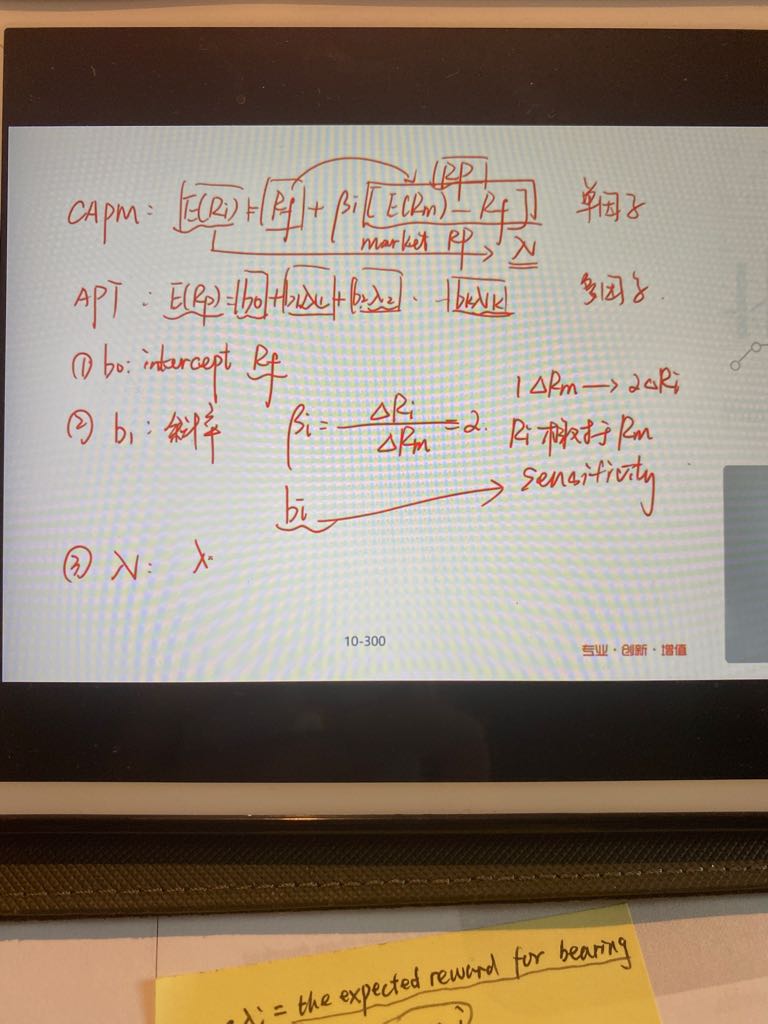 CAPM: E(Ri) = Rf + βi [E(Rm) - Rf] 单因子
RP
market RP λ
APT: E(Rp) = b0 + b1λ1 + b2λ2 .. + bkλk 多因子.
① b0: intercept Rf
② b1: 斜率 βi = ΔRi/ΔRm = 2. 1ΔRm → 2ΔRi
Ri 相对于 Rm
bi → sensitivity
③ λ: λ
10-300
专业·创新·增值
λi = the expected reward for bearing